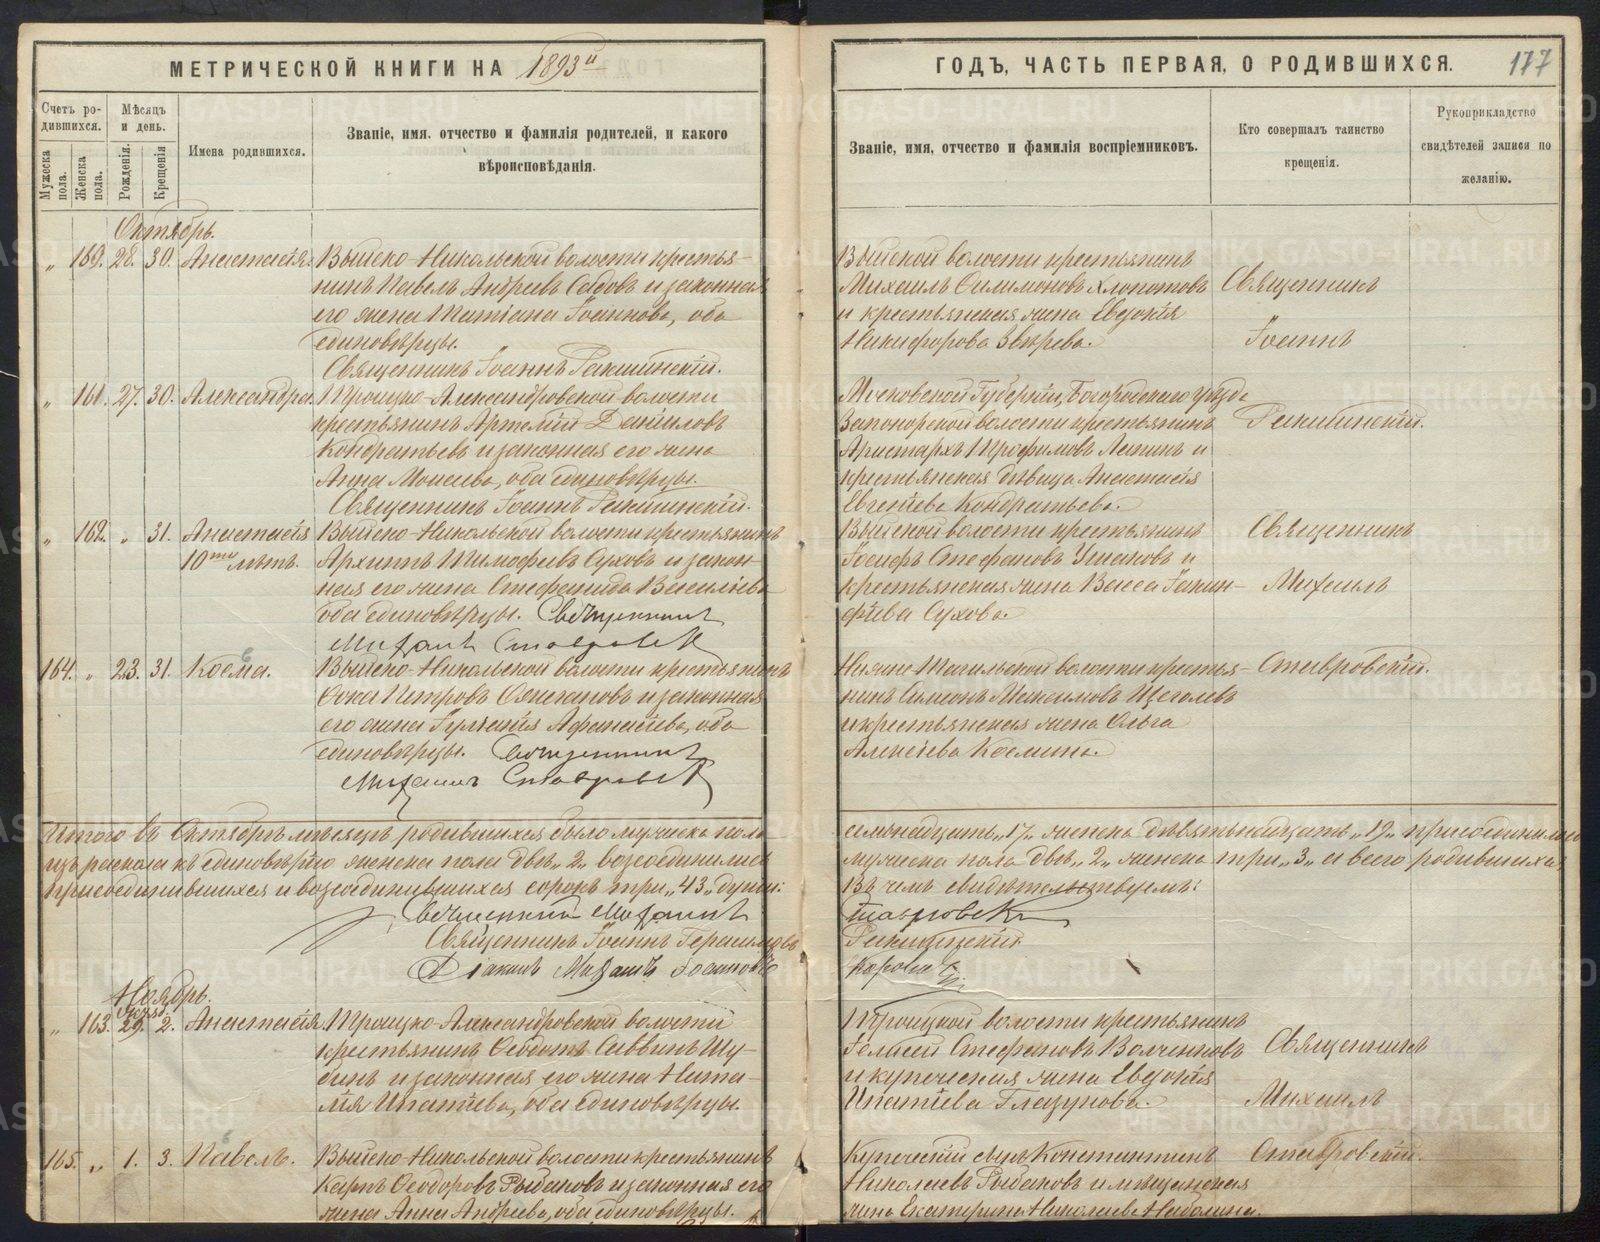 МЕТРИЧЕСКОЙ КНИГИ НА 1893й
Счетъ ро-
дившихся.
Мужеска
пола.
Женска
пола.
Мѣсяцъ
и день.
Рожденія.
Крещенія
Имена родившихся.
Званіе, имя, отчество и фамилія родителей, и какого
вѣроисповѣданія.
Октябрь.
„ 169. 28. 30. Анастасія. Выйско-Никольской волости крестья-
нинъ Павелъ Андреевъ Сѣдовъ и законная
его жена Татіана Іоаннова, оба
единовѣрцы.
Священникъ Іоаннъ Ракшинскій.
„ 161. 27. 30. Александра. Троицко-Александровской волости
крестьянинъ Артемій Даниловъ
Кондратьевъ и законная его жена
Анна Моисеева, оба единовѣрцы.
Священникъ Іоаннъ Ракшинскій.
„ 162. „ 31. Анастасія Выйско-Никольской волости крестьянинъ
10ти лѣтъ. Архиппъ Тимофеевъ Суховъ и закон-
ная его жена Стефанида Василіева
оба единовѣрцы. Священникъ
Михаилъ Ставровскій
164. „ 23. 31. Косма. Выйско-Никольской волости крестьянинъ
Ѳока Петровъ и законная
его жена Іуліанія Афанасіева, оба
единовѣрцы. Священникъ
Михаилъ Ставровскій
Итого въ Октябрѣ мѣсяцѣ родившихся было мужска пола
изъ раскола къ единовѣрію женска пола двѣ „2„ возсоединились
присоединившихся и возсоединившихся сорокъ три „43„ души:
Священникъ Михаилъ
Священникъ Іоаннъ Герасимовъ
Діаконъ Михаилъ Іоанновъ
Ноябрь.
Октяб.
„ 163. 29. 2. Анастасія. Троицко-Александровской волости
крестьянинъ Ѳедотъ Саввинъ Шу-
бинъ и законная его жена Ната-
лія Ипатіева, оба единовѣрцы.
165. „ 1. 3. Павелъ. Выйско-Никольской волости крестьянинъ
Карпъ Ѳеодоровъ Рыбаковъ и законная его
жена Анна Андреева, оба единовѣрцы.
ГОДЪ, ЧАСТЬ ПЕРВАЯ, О РОДИВШИХСЯ. 177
Званіе, имя, отчество и фамилія воспріемниковъ.
Кто совершалъ таинство
крещенія.
Рукоприкладство
свидѣтелей записи по
желанію.
Выйской волости крестьянинъ
Михаилъ Филимоновъ Хлопотовъ Священникъ
и крестьянская жена Евдокія
Никифорова Звѣрева. Іоаннъ
Московской Губерніи, Богородскаго уѣзда
Запонорской волости крестьянинъ Ракшинскій.
Аристархъ Трофимовъ Лепинъ и
крестьянская дѣвица Анастасія
Евгеніева Кондратьева.
Выйской волости крестьянинъ Священникъ
Іосифъ Стефановъ Ушаковъ и
крестьянская жена Васса Іакин- Михаилъ
фіева Сухова.
Нижне Тагильской волости крестья- Ставровскій.
нинъ Симеонъ Максимовъ Щеголевъ
и крестьянская жена Ольга
Алексіева Космина.
семнадцать „17„ женска дѣвятьнадцать „19„ присоединились
мужска пола двѣ „2„ женска три „3„ а всего родившихся,
Въ чемъ свидѣтельствуемъ:
Ставровскій
Ракшинскій
Троицкой волости крестьянинъ
Гелисей Стефановъ Волченковъ Священникъ
и купеческая жена Евдокія
Ипатіева Глазунова. Михаилъ
Купеческій сынъ Константинъ Ставровскій.
Николаевъ Рыбаковъ и мѣщанская
жена Екатерина Николаева Наболина.
METRIKI.GASO-URAL.RU